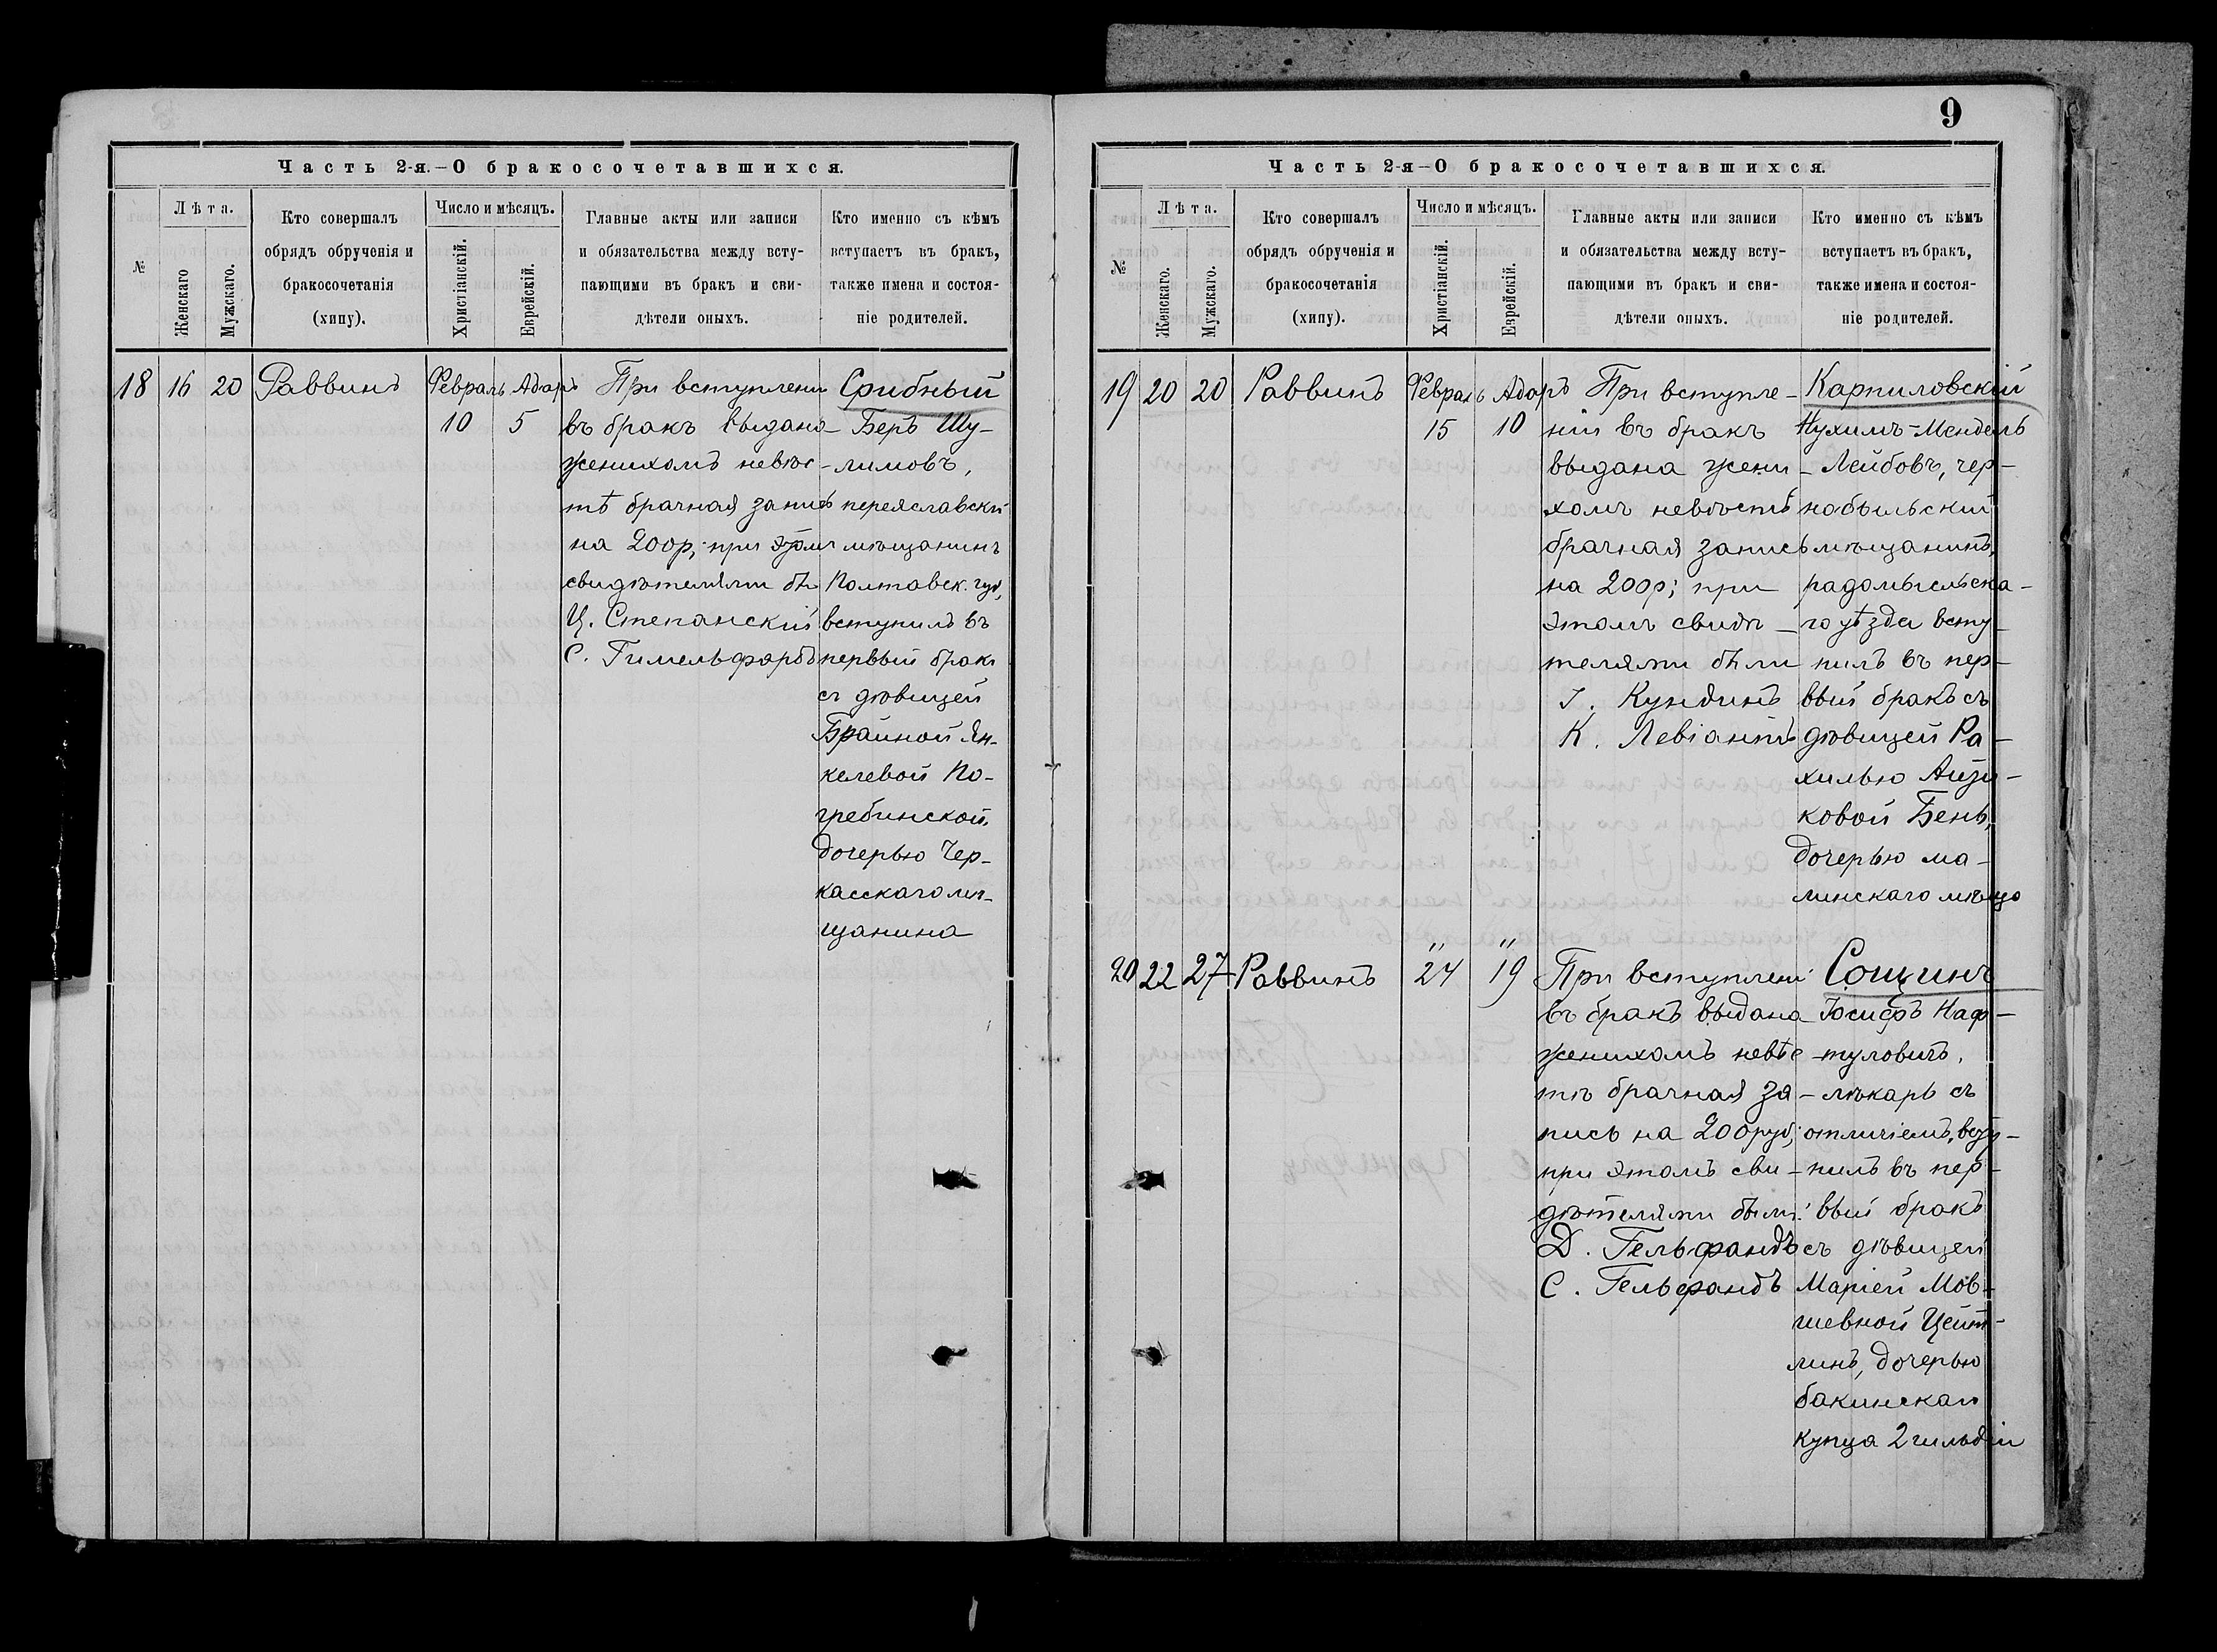 Часть 2-я.—О бракосочетавшихся.
№
Лѣта.
Женскаго
Мужскаго.
Кто совершалъ
обрядъ обрученія и
бракосочетанія
(хипу).
Число и мѣсяцъ.
Христіанскій.
Еврейскій.
Главные акты или записи
и обязательства между всту-
пающими въ бракъ и сви-
дѣтели оныхъ.
Кто именно съ кѣмъ
вступаетъ въ бракъ,
также имена и состоя-
ніе родителей.
18 16 20 Раввинъ
Февраль Адаръ
10 5
При вступлени
въ бракъ выдана
женихомъ невѣс-
тѣ брачная запись
на 200р; при этомъ
свидѣтелями бы
Ц. Степанскій
С. Гимельфарбъ
Срибный
Беръ Шу-
лимовъ,
переяславскій
мѣщанинъ
Полтавск. губ,
вступилъ въ
первый бракъ
съ дѣвицей
Брайной Ян-
келевой По-
гребинской,
дочерью Чер-
касскаго мѣ-
щанина
9
Часть 2-я—О бракосочетавшихся.
№
Лѣта.
Женскаго.
Мужскаго.
Кто совершалъ
обрядъ обрученія и
бракосочетанія
(хипу).
Число и мѣсяцъ.
Христіанскій.
Еврейскій.
Главные акты или записи
и обязательства между всту-
пающими въ бракъ и сви-
дѣтели оныхъ.
Кто именно съ кѣмъ
вступаетъ въ бракъ,
также имена и состоя-
ніе родителей.
19 20 20 Раввинъ
Февраль Адаръ
15 10
При вступле-
ніи въ бракъ
выдана жени-
хомъ невѣстѣ
брачная запись
на 200р; при
этомъ свидѣ-
телями были
І. Кундинъ
К. Левіантъ
Карпиловскій
Нухимъ-Мендель
Лейбовъ, чер-
нобыльскій
мѣщанинъ,
радомысльска-
го уѣзда всту-
пилъ въ пер-
вый бракъ съ
дѣвицей Ра-
хилью Айзи-
ковой Бенъ,
дочерью ма-
линскаго мѣщ.
20 22 27 Раввинъ
" "
24 19
При вступлені
въ бракъ выдана
женихомъ невѣс-
тѣ брачная за-
пись на 200руб;
при этомъ сви-
дѣтелями были:
Д. Гельфандъ
С. Гельфандъ
Сощинъ
Іосифъ Наф-
туловичъ,
лѣкарь съ
отличіемъ, всту-
пилъ въ пер-
вый бракъ
съ дѣвицей
Маріей Мов-
шевной Цейт-
линъ, дочерью
бакинскаго
купца 2 гильдіи